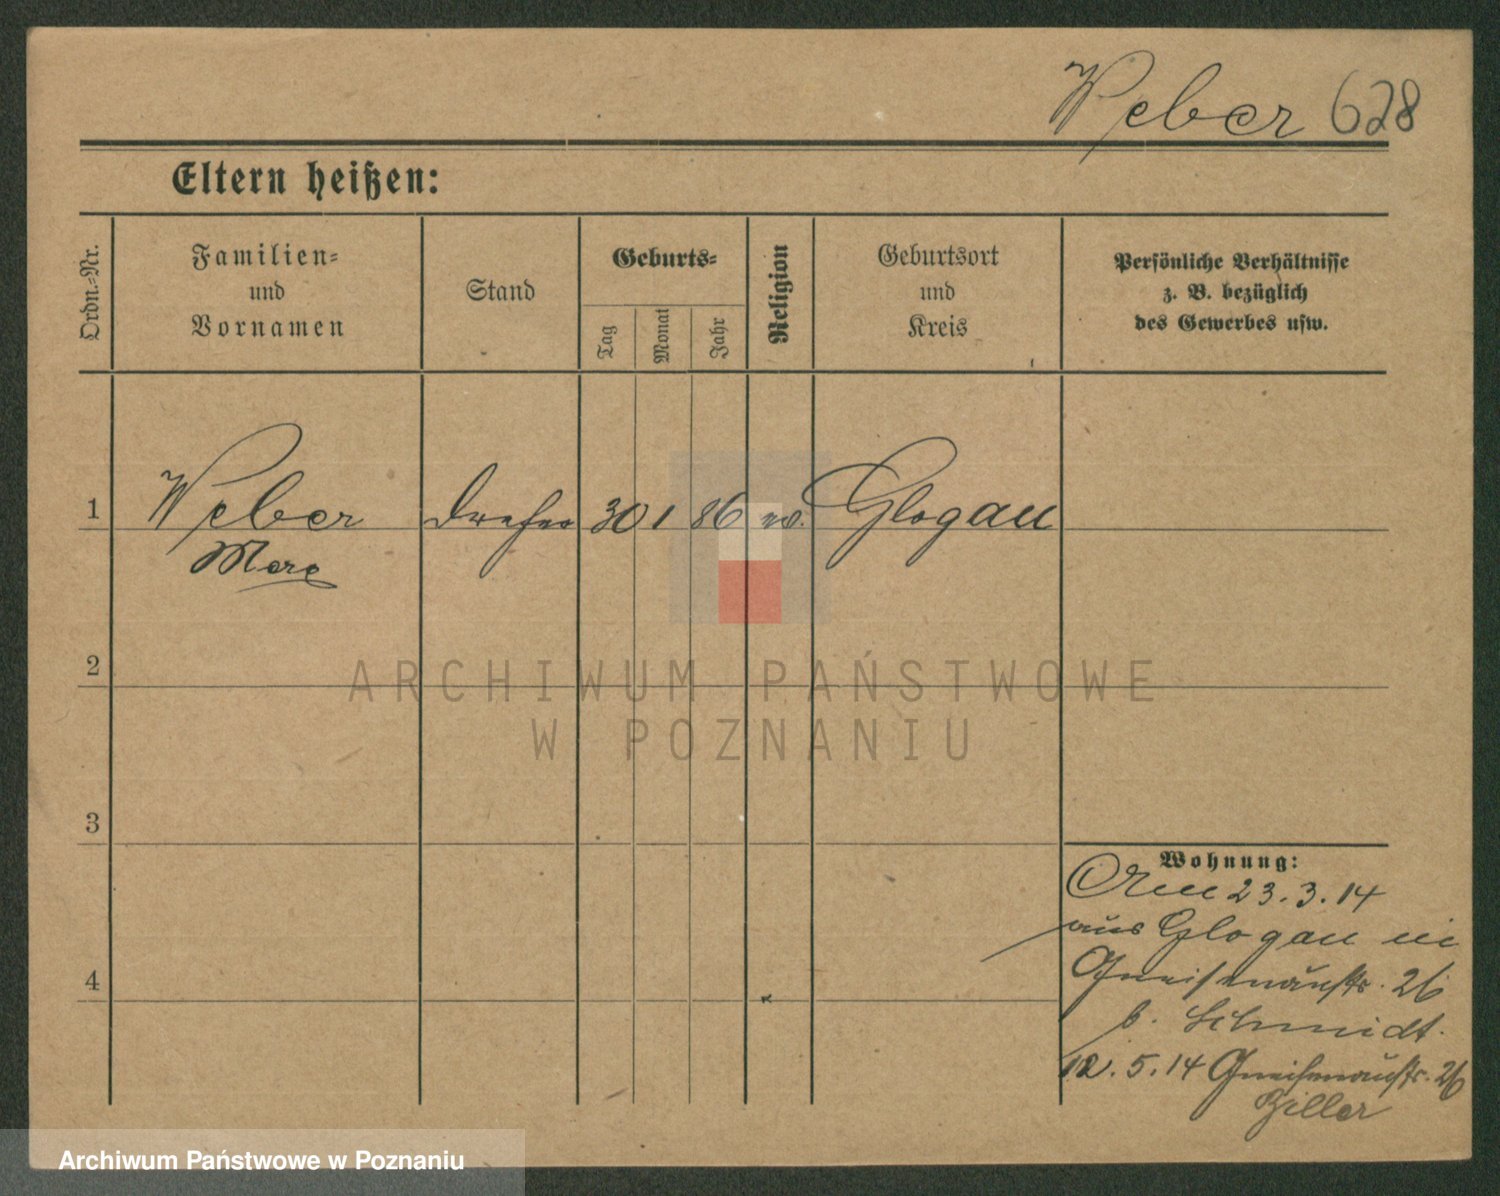 Weber 628
Eltern heißen:
Ordn.-Nr.
Familien-
und
Vornamen
Stand
Geburts-
Tag
Monat
Jahr
Religion
Geburtsort
und
Kreis
Persönliche Verhältnisse
z. B. bezüglich
des Gewerbes usw.
1 Weber Dreher 30 1 86 ev. Glogau
Marx
2
3
4
Wohnung:
23.3.14
aus Glogau in
Gneisenaustr. 26
b. Schmidt.
12.5.14 Gneisenaustr. 26
Ziller
ARCHIWUM PAŃSTWOWE
W POZNANIU
Archiwum Państwowe w Poznaniu